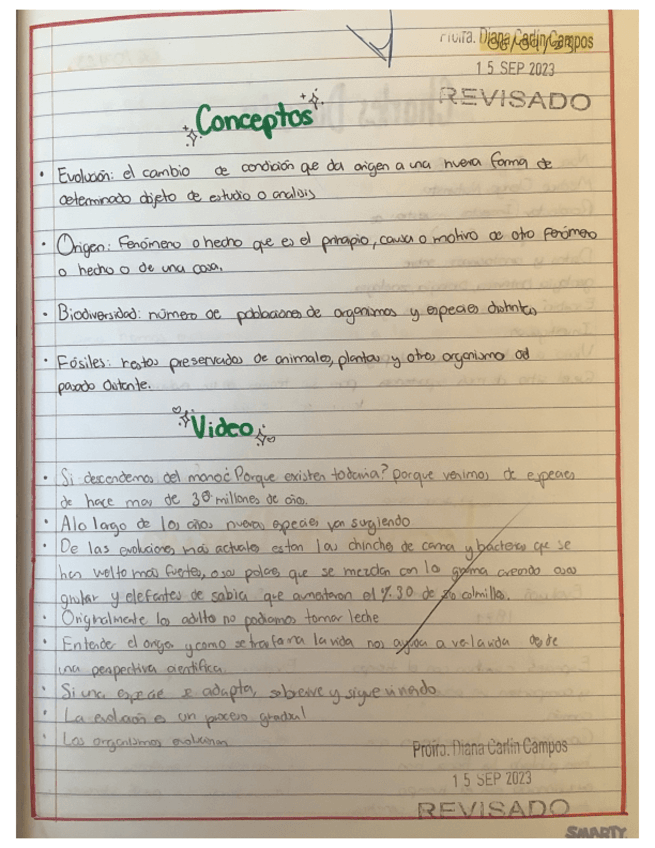 Profra. Diana Carlin Campos
15 SEP 2023
REVISADO
Conceptos
• Evolución: el cambio de condición que da origen a una nueva forma de
determinado objeto de estudio o analisis
• Origen: Fenómeno o hecho que es el principio, causa o motivo de otro fenómeno
o hecho o de una cosa.
• Biodiversidad: número de poblaciones de organismos y especies distintas
• Fósiles: restos preservados de animales, plantas y otros organismo del
pasado distante.
Video
• Si descendemos del mono¿ Porque existen todavia? porque venimos de especies
de hace mas de 30 millones de años.
• Alo largo de los años nuevas especies van surgiendo.
• De las evoluciones mas actuales estan las chinches de cama y bacterias que se
han vuelto mas fuertes, osos polares que se mezclan con la creando osos
y elefantes de sabia que aumentaron el %30 de colmillo.
• Originalmente los adulto no podiamos tomar leche
• Entender el origen y como se la vida nos ayuda a ver la vida desde
una perspectiva cientifica.
• Si una especie se adapta, sobrevive y sigue viviendo.
• La evolución es un proceso gradual
• Los organismos evolucionan
Profra. Diana Carlin Campos
15 SEP 2023
REVISADO
SMARTY